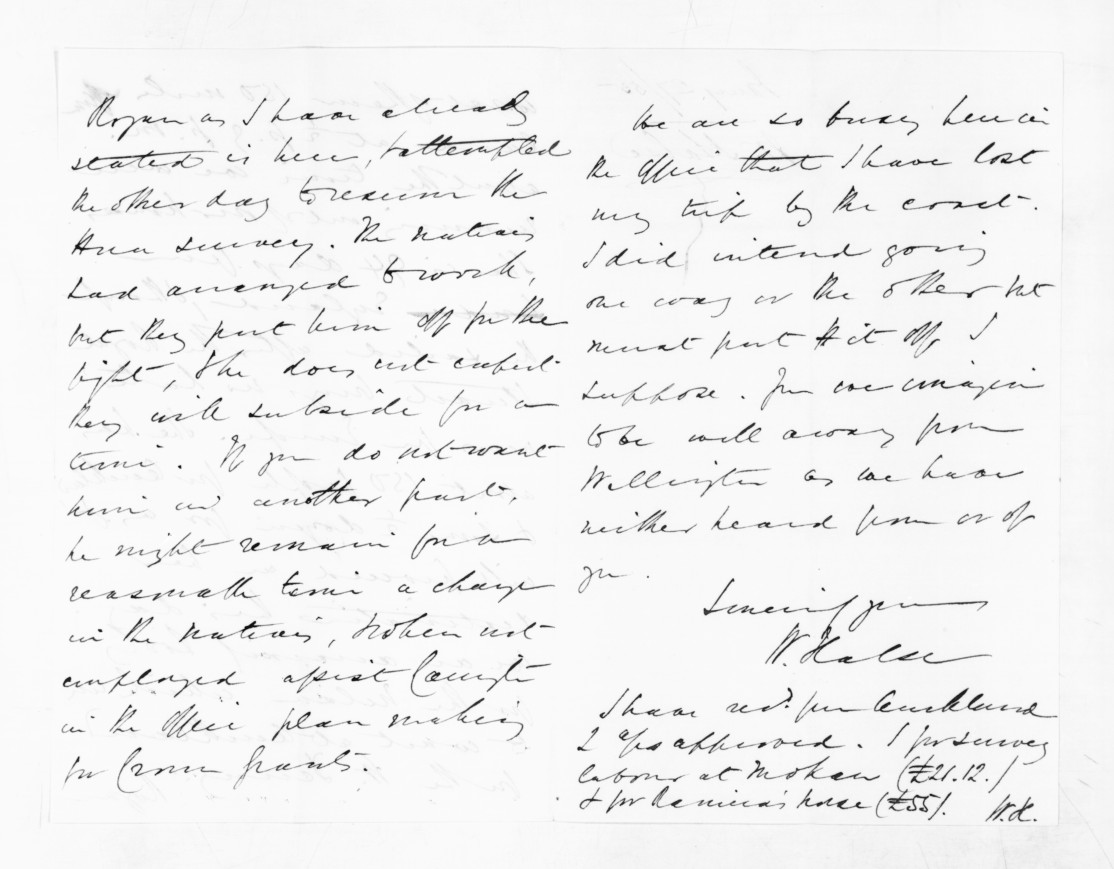 Rogan as I have already
stated is here, & attempted
the other day to resume the
Hua survey. The natives
had arranged to work,
but they put him off for the
fight, & he does not expect
they will subside for a
time. If you do not want
him in another part,
he might remain for a
reasonable time a change
in the natives, & when not
employed assist Carrington
in the Office plan making
for Crown Grants.
We are so busy here in
the Office that I have lost
my trip by the coast.
I did intend going
one way or the other but
must put it off I
suppose. You we imagine
to be well away from
Wellington as we have
neither heard from or of
you.
Sincerely yours
W. Halse
I have recd. from Auckland
2 a/cs approved. 1 for survey
labour at Mokau (£21.12.)
& for Ramira's horse (£55). W.H.